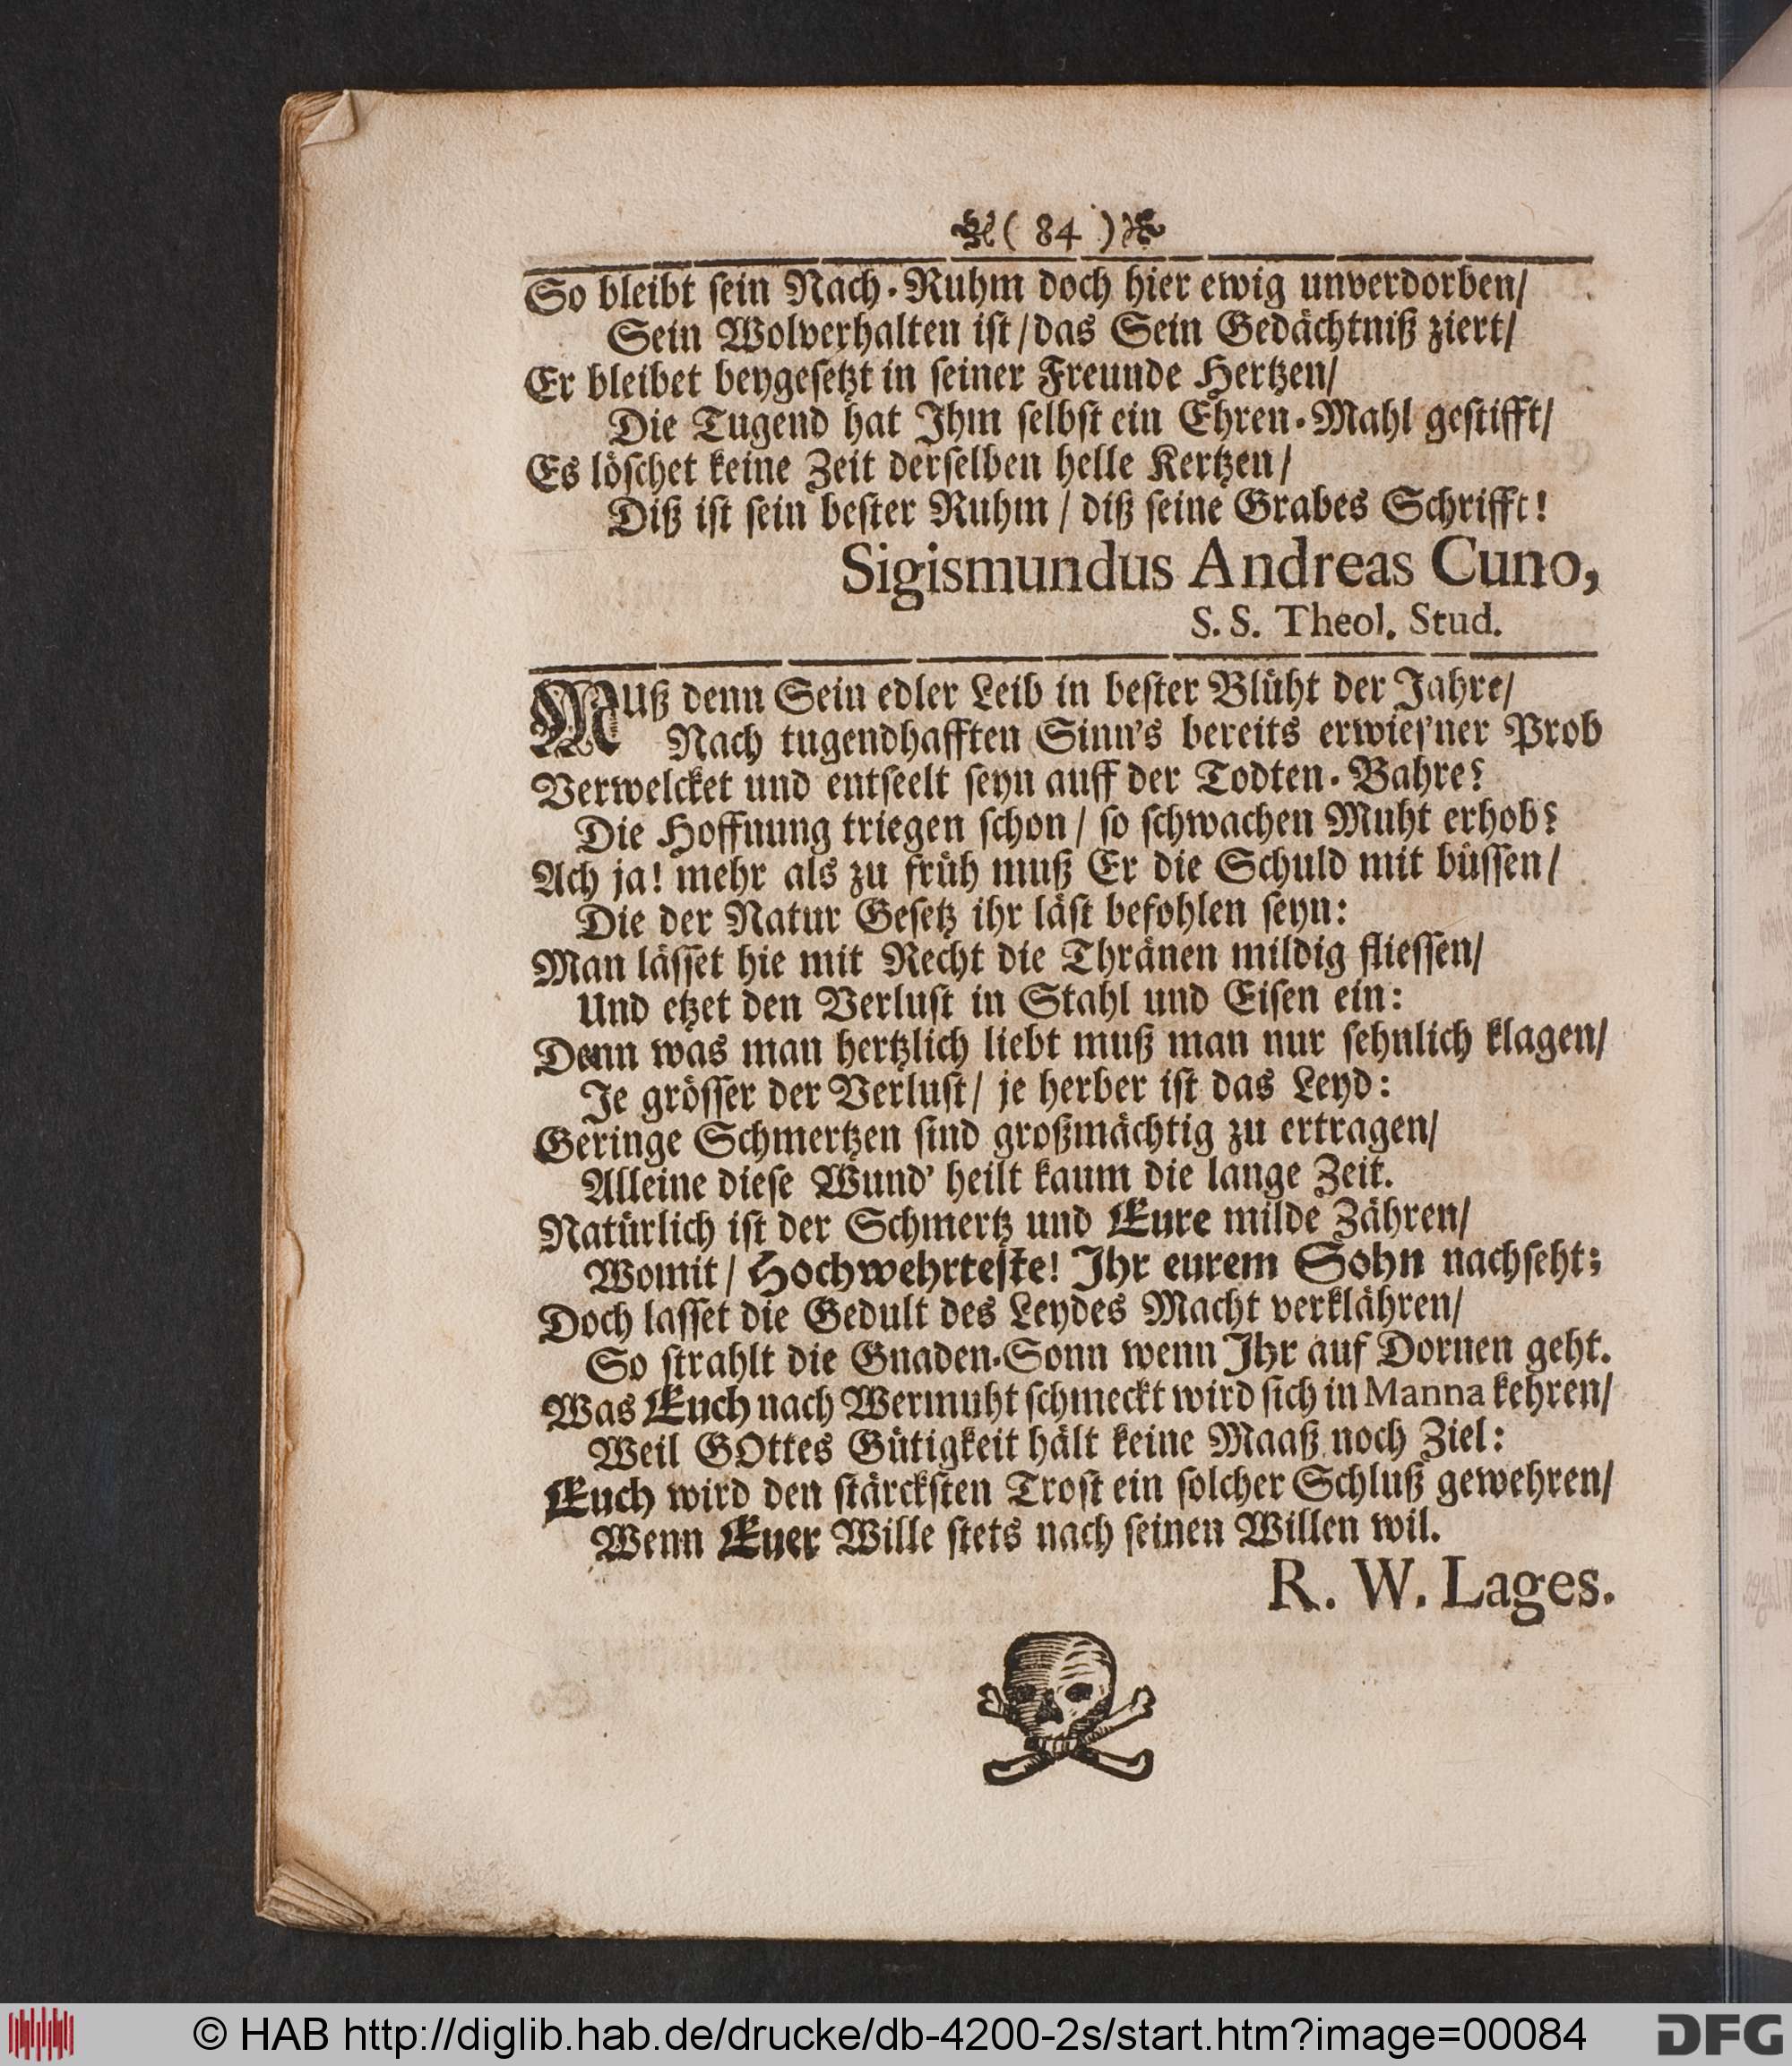 ( 84 )
So bleibt sein Nach-Ruhm doch hier ewig unverdorben/
Sein Wolverhalten ist/das Sein Gedächtniß ziert/
Er bleibet beygesetzt in seiner Freunde Hertzen/
Die Tugend hat Ihm selbst ein Ehren-Mahl gestifft/
Es löschet keine Zeit derselben helle Kertzen/
Diß ist sein bester Ruhm / diß seine Grabes Schrifft!
Sigismundus Andreas Cuno,
S. S. Theol. Stud.
MUß denn Sein edler Leib in bester Blüht der Jahre/
Nach tugendhafften Sinn's bereits erwies'ner Prob
Verwelcket und entseelt seyn auff der Todten-Bahre?
Die Hoffnung triegen schon / so schwachen Muht erhob?
Ach ja! mehr als zu früh muß Er die Schuld mit büssen/
Die der Natur Gesetz ihr läst befohlen seyn:
Man lässet hie mit Recht die Thränen mildig fliessen/
Und etzet den Verlust in Stahl und Eisen ein:
Denn was man hertzlich liebt muß man nur sehnlich klagen/
Je grösser der Verlust/ je herber ist das Leyd:
Geringe Schmertzen sind großmächtig zu ertragen/
Alleine diese Wund' heilt kaum die lange Zeit.
Natürlich ist der Schmertz und Eure milde Zähren/
Womit / Hochwehrteste! Ihr eurem Sohn nachseht;
Doch lasset die Gedult des Leydes Macht verklähren/
So strahlt die Gnaden-Sonn wenn Ihr auf Dornen geht.
Was Euch nach Wermuht schmeckt wird sich in Manna kehren/
Weil GOttes Gütigkeit hält keine Maaß noch Ziel:
Euch wird den stärcksten Trost ein solcher Schluß gewehren/
Wenn Euer Wille stets nach seinen Willen wil.
R. W. Lages.
© HAB http://diglib.hab.de/drucke/db-4200-2s/start.htm?image=00084
DFG